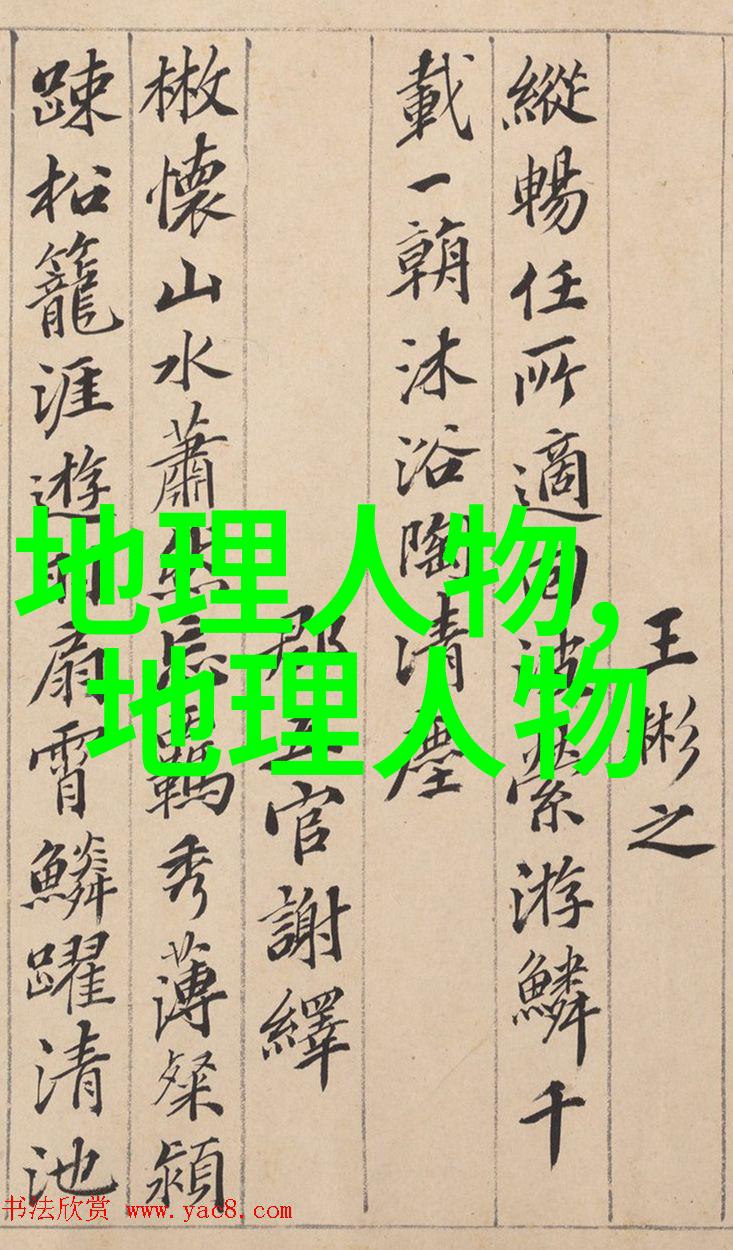 王彬之
縱暢任所適回波縈游鱗千
載一朝沐浴陶清塵
郡五官謝繹
散懷山水蕭然忘羈秀薄粲穎
踈松籠涯遊羽扇霄鱗躍清池
地理人物,
地理人物
书法欣赏 www.yac8.com